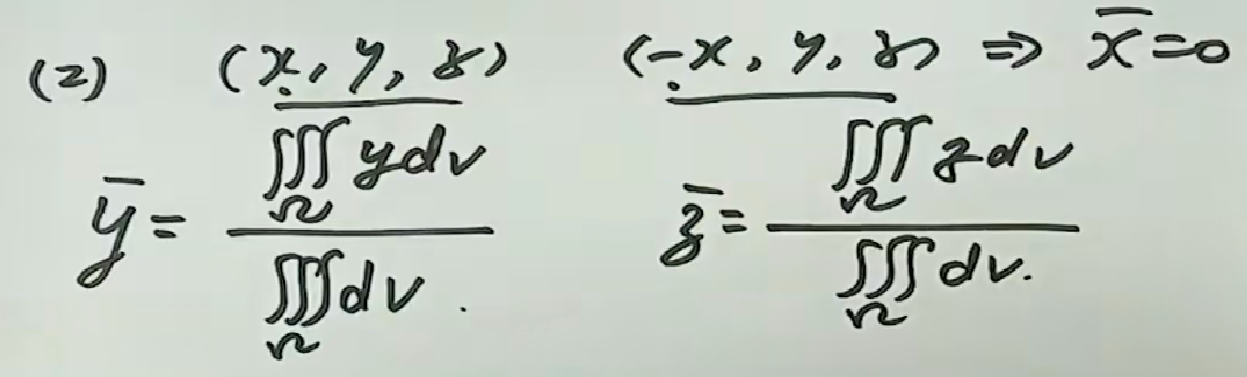 (2) (x, y, z) (-x, y, z) ⇒ x̄=0
ȳ = ∭_Ω y dv / ∭_Ω dv. z̄ = ∭_Ω z dv / ∭_Ω dv.